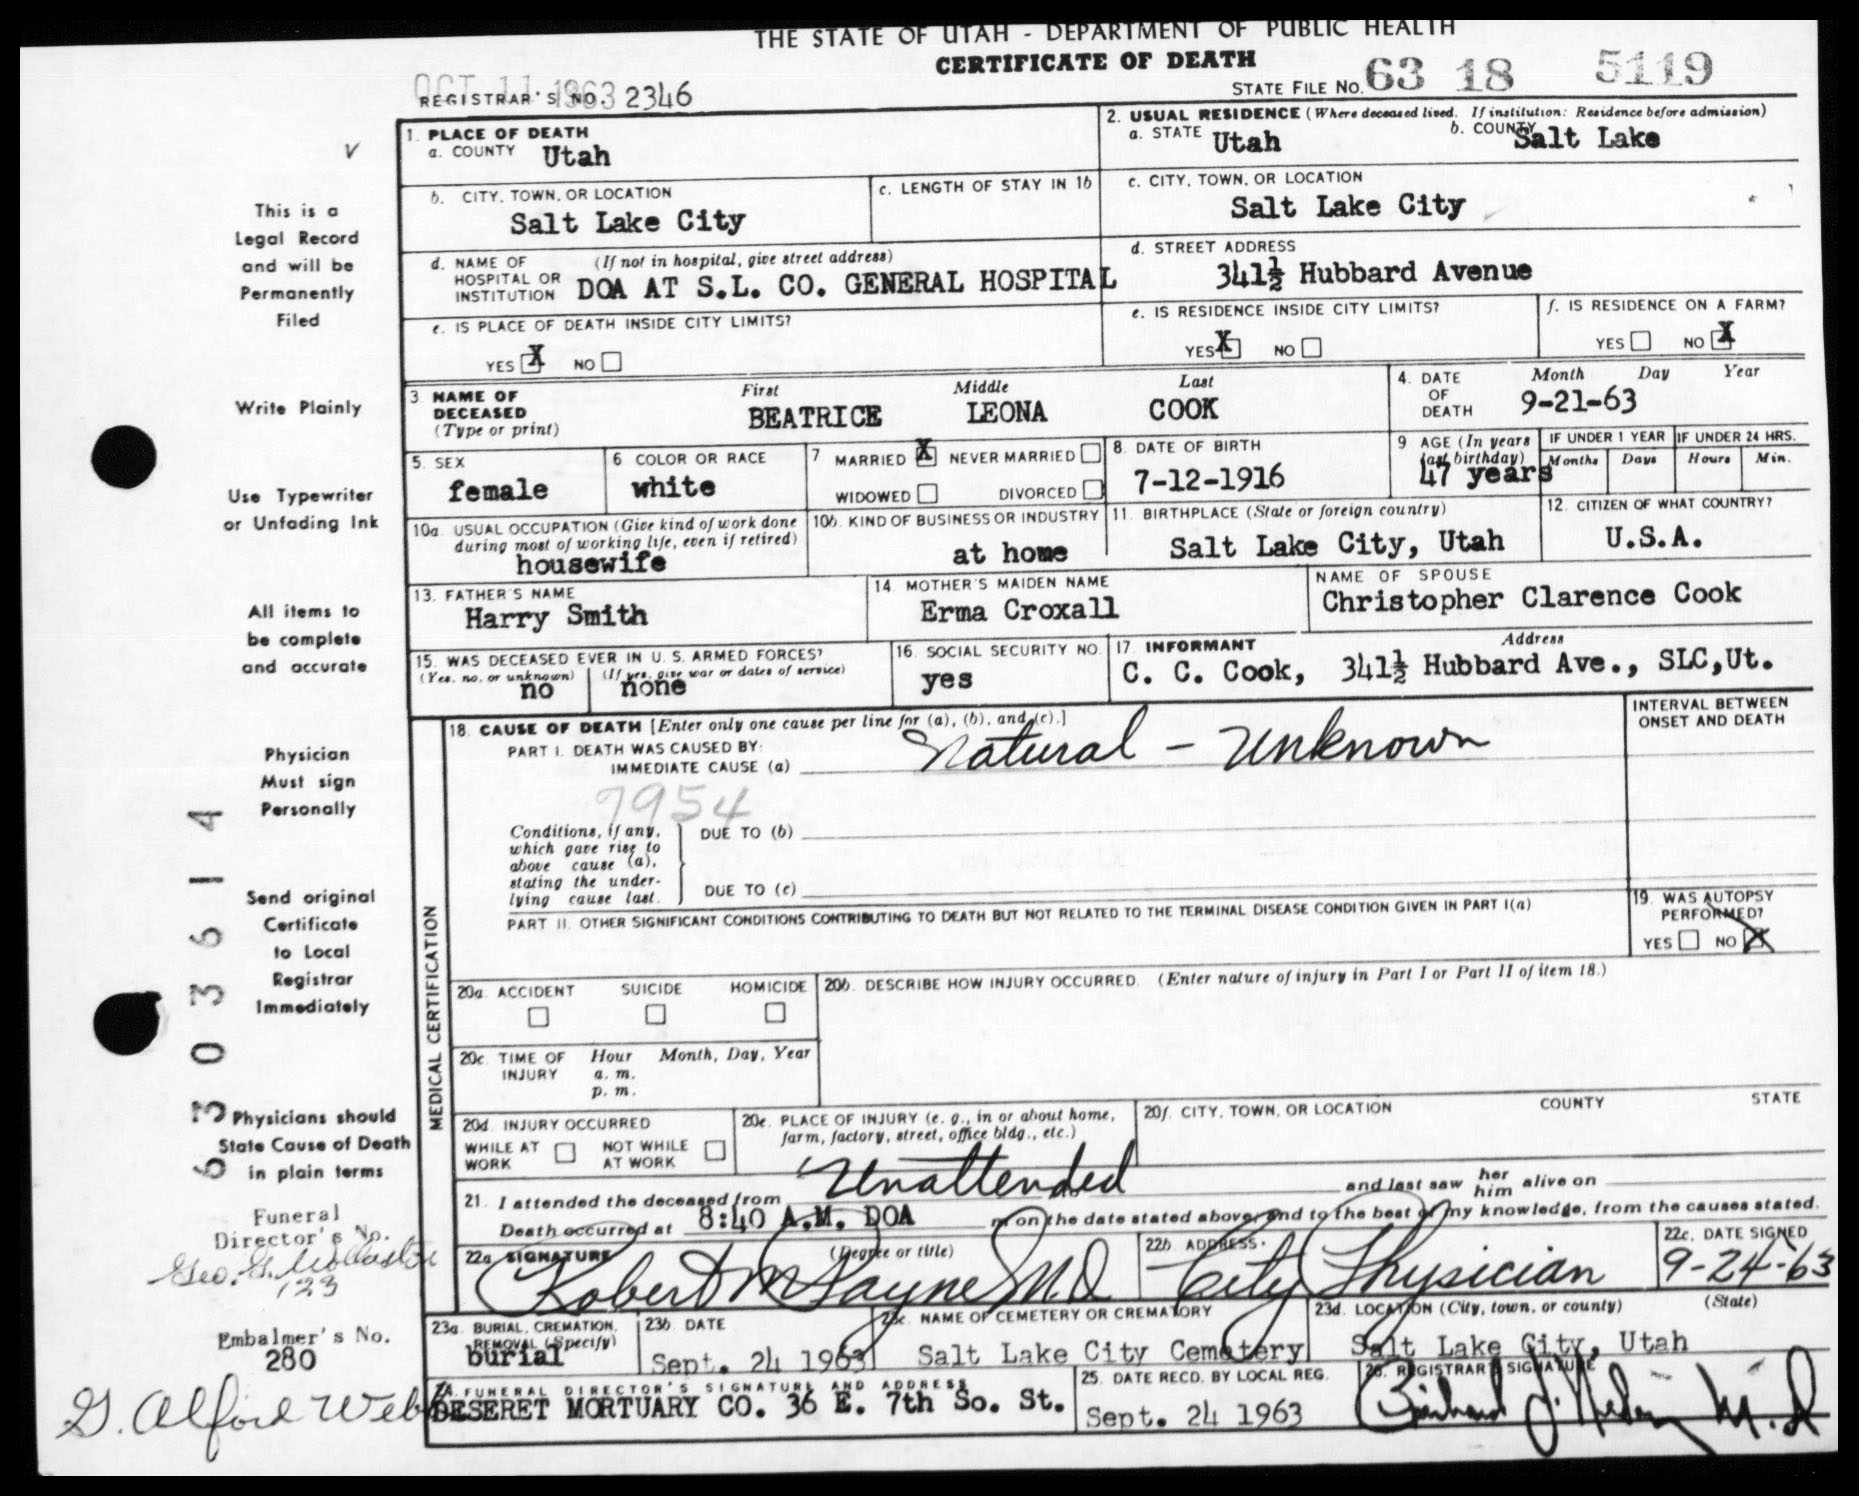 THE STATE OF UTAH - DEPARTMENT OF PUBLIC HEALTH
CERTIFICATE OF DEATH
OCT 11 1963
REGISTRAR'S NO. 2346
STATE FILE NO. 63 18 5119
This is a
Legal Record
and will be
Permanently
Filed
Write Plainly
Use Typewriter
or Unfading Ink
All items to
be complete
and accurate
Physician
Must sign
Personally
Send original
Certificate
to Local
Registrar
Immediately
Physicians should
State Cause of Death
in plain terms
Funeral
Director's No.
Geo. G.
123
Embalmer's No.
280
G. Alford
6303614
1. PLACE OF DEATH
a. COUNTY Utah
2. USUAL RESIDENCE (Where deceased lived. If institution: Residence before admission)
a. STATE Utah b. COUNTY Salt Lake
b. CITY, TOWN, OR LOCATION
Salt Lake City
c. LENGTH OF STAY IN 1b
c. CITY, TOWN, OR LOCATION
Salt Lake City
d. NAME OF HOSPITAL OR INSTITUTION (If not in hospital, give street address)
DOA AT S.L. CO. GENERAL HOSPITAL
d. STREET ADDRESS
341½ Hubbard Avenue
e. IS PLACE OF DEATH INSIDE CITY LIMITS?
YES X NO
e. IS RESIDENCE INSIDE CITY LIMITS?
YES X NO
f. IS RESIDENCE ON A FARM?
YES NO X
3. NAME OF DECEASED (Type or print)
First Middle Last
BEATRICE LEONA COOK
4. DATE OF DEATH
Month Day Year
9-21-63
5. SEX
female
6 COLOR OR RACE
white
7 MARRIED X NEVER MARRIED
WIDOWED DIVORCED
8. DATE OF BIRTH
7-12-1916
9 AGE (In years last birthday)
47 years
IF UNDER 1 YEAR
Months Days
IF UNDER 24 HRS.
Hours Min.
10a. USUAL OCCUPATION (Give kind of work done during most of working life, even if retired)
housewife
10b. KIND OF BUSINESS OR INDUSTRY
at home
11. BIRTHPLACE (State or foreign country)
Salt Lake City, Utah
12. CITIZEN OF WHAT COUNTRY?
U.S.A.
13. FATHER'S NAME
Harry Smith
14. MOTHER'S MAIDEN NAME
Erma Croxall
NAME OF SPOUSE
Christopher Clarence Cook
15. WAS DECEASED EVER IN U. S. ARMED FORCES?
(Yes, no, or unknown) (If yes, give war or dates of service)
no none
16. SOCIAL SECURITY NO.
yes
17. INFORMANT Address
C. C. Cook, 341½ Hubbard Ave., SLC,Ut.
MEDICAL CERTIFICATION
18. CAUSE OF DEATH [Enter only one cause per line for (a), (b), and (c).]
PART I. DEATH WAS CAUSED BY:
IMMEDIATE CAUSE (a) Natural - Unknown
INTERVAL BETWEEN ONSET AND DEATH
7954
Conditions, if any, which gave rise to above cause (a), stating the underlying cause last.
DUE TO (b)
DUE TO (c)
PART II. OTHER SIGNIFICANT CONDITIONS CONTRIBUTING TO DEATH BUT NOT RELATED TO THE TERMINAL DISEASE CONDITION GIVEN IN PART I(a)
19. WAS AUTOPSY PERFORMED?
YES NO X
20a. ACCIDENT SUICIDE HOMICIDE
20b. DESCRIBE HOW INJURY OCCURRED. (Enter nature of injury in Part I or Part II of item 18.)
20c. TIME OF INJURY Hour Month, Day, Year
a. m.
p. m.
20d. INJURY OCCURRED
WHILE AT WORK NOT WHILE AT WORK
20e. PLACE OF INJURY (e. g., in or about home, farm, factory, street, office bldg., etc.)
20f. CITY, TOWN, OR LOCATION COUNTY STATE
21. I attended the deceased from Unattended and last saw her him alive on
Death occurred at 8:40 A.M. DOA m on the date stated above, and to the best of my knowledge, from the causes stated.
22a. SIGNATURE (Degree or title)
Robert M Payne M.D
22b. ADDRESS
City Physician
22c. DATE SIGNED
9-24-63
23a. BURIAL, CREMATION, REMOVAL (Specify)
burial
23b. DATE
Sept. 24 1963
23c. NAME OF CEMETERY OR CREMATORY
Salt Lake City Cemetery
23d. LOCATION (City, town, or county) (State)
Salt Lake City, Utah
24. FUNERAL DIRECTOR'S SIGNATURE AND ADDRESS
DESERET MORTUARY CO. 36 E. 7th So. St.
25. DATE RECD. BY LOCAL REG.
Sept. 24 1963
26. REGISTRAR'S SIGNATURE
M.D